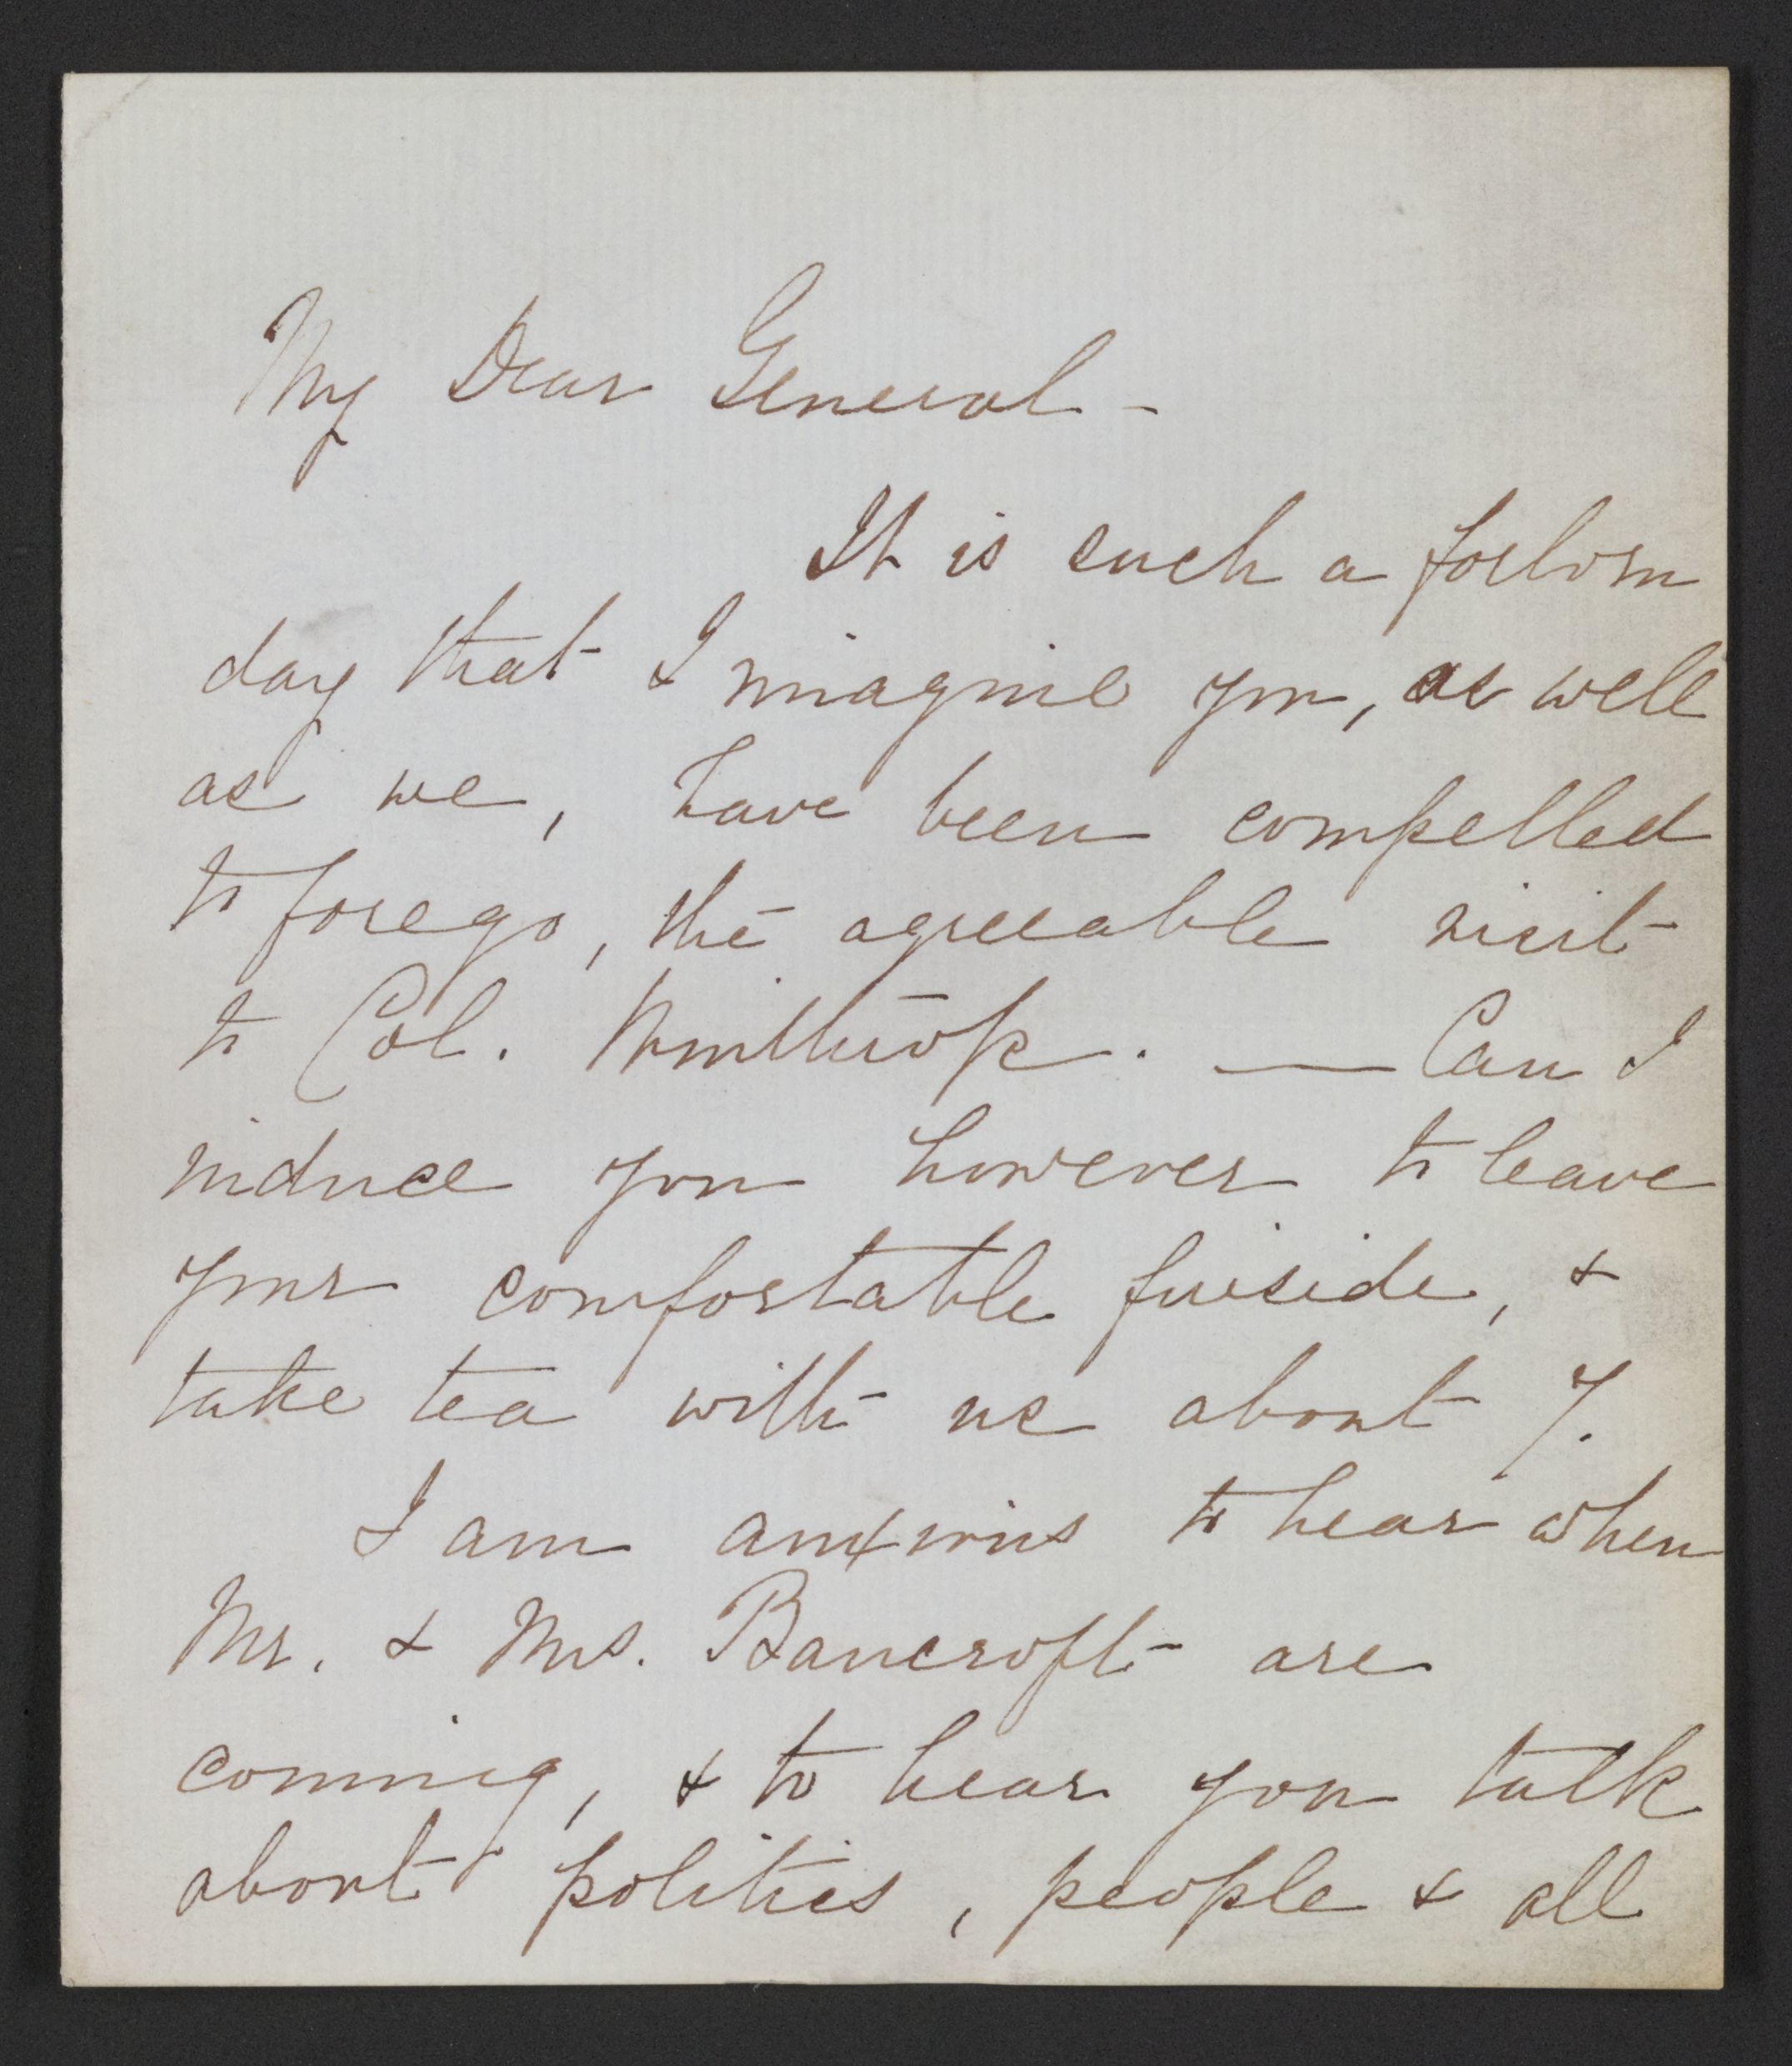 My Dear General -
It is such a forlorn
day that I imagine you, as well
as we, have been compelled
to forego, the agreeable visit
to Col. Winthrop. — Can I
induce you however to leave
your comfortable fireside, &
take tea with us about 7.
I am anxious to hear when
Mr. & Mrs. Bancroft are
coming, & to hear you talk
about politics, people & all